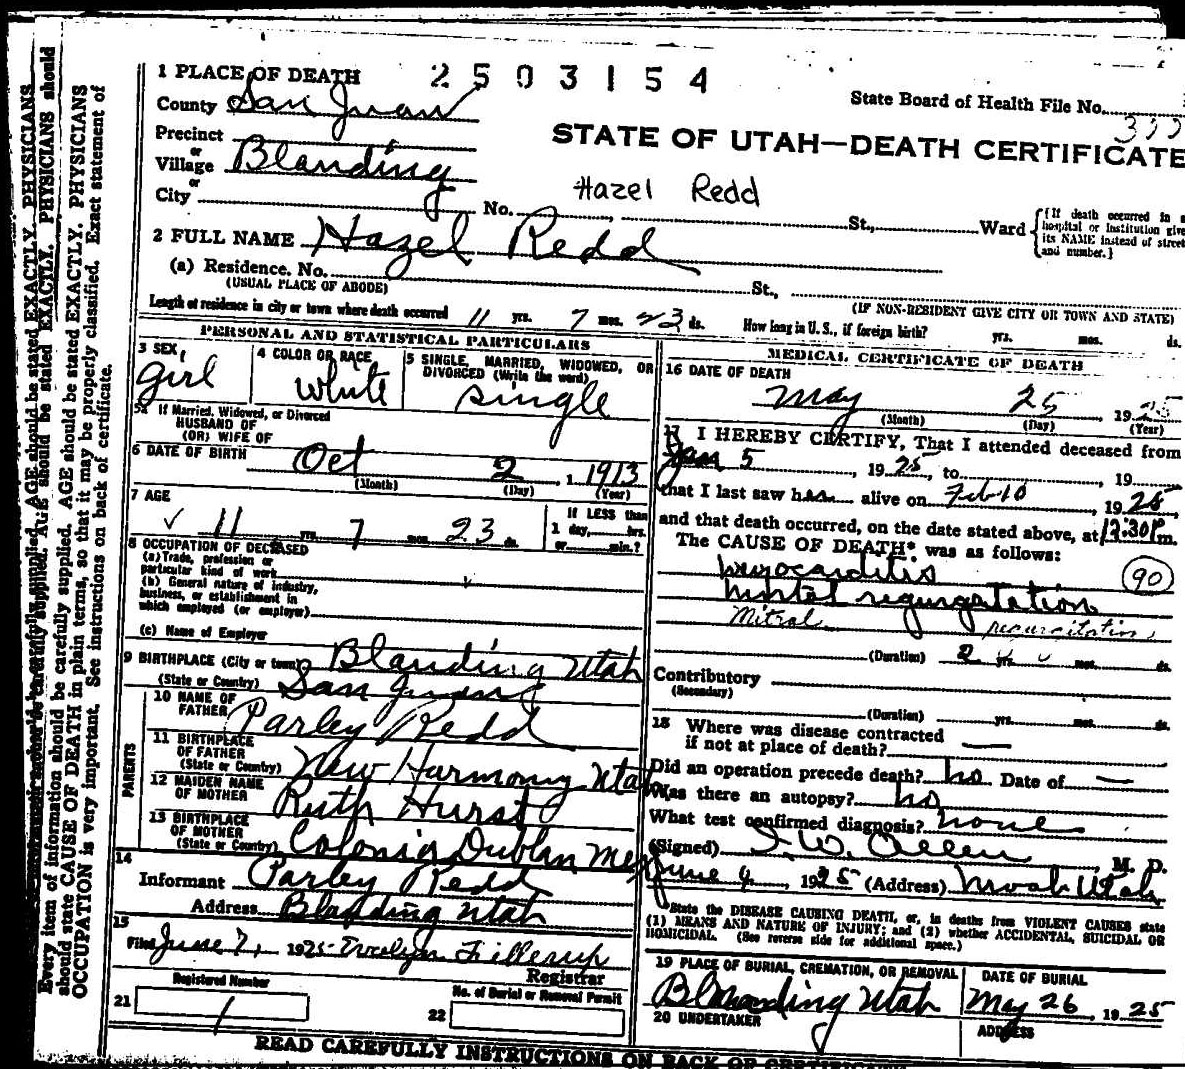 1 PLACE OF DEATH 2503154
State Board of Health File No.
County San Juan
STATE OF UTAH—DEATH CERTIFICATE
Precinct
or
Village Blanding
or
Hazel Redd
City No. St., Ward {(If death occurred in a hospital or institution give its NAME instead of street and number.)
2 FULL NAME Hazel Redd
(a) Residence. No. St.,
(USUAL PLACE OF ABODE)
(IF NON-RESIDENT GIVE CITY OR TOWN AND STATE)
Length of residence in city or town where death occurred 11 yrs. 7 mos. 23 ds. How long in U. S., if foreign birth? yrs. mos. ds.
PERSONAL AND STATISTICAL PARTICULARS
3 SEX girl
4 COLOR OR RACE white
5 SINGLE, MARRIED, WIDOWED, OR DIVORCED (Write the word) single
5a If Married, Widowed, or Divorced
HUSBAND OF
(OR) WIFE OF
6 DATE OF BIRTH Oct 2, 1913
(Month) (Day) (Year)
7 AGE
11 yrs. 7 mos. 23 ds.
If LESS than
1 day, hrs.
or min.?
8 OCCUPATION OF DECEASED
(a) Trade, profession or
particular kind of work
(b) General nature of industry,
business, or establishment in
which employed (or employer)
(c) Name of Employer
9 BIRTHPLACE (City or town) Blanding Utah
(State or Country) San Juan
PARENTS
10 NAME OF
FATHER Parley Redd
11 BIRTHPLACE
OF FATHER
(State or Country) New Harmony Utah
12 MAIDEN NAME
OF MOTHER Ruth Hurst
13 BIRTHPLACE
OF MOTHER
(State or Country) Colonia Dublan Mex
14
Informant Parley Redd
Address Blanding Utah
15
Filed June 7, 1925 Fillerup
Registrar
Registered Number
21 1
No. of Burial or Removal Permit
22
MEDICAL CERTIFICATE OF DEATH
16 DATE OF DEATH
May 25 1925
(Month) (Day) (Year)
17 I HEREBY CERTIFY, That I attended deceased from
Jan 5, 1925, to , 19
that I last saw h alive on Feb 10, 1925,
and that death occurred, on the date stated above, at 12:30P m.
The CAUSE OF DEATH* was as follows:
myocarditis
90
regurgitation
Mitral regurgitation
(Duration) 2 yrs. mos. ds.
Contributory
(Secondary)
(Duration) yrs. mos. ds.
18 Where was disease contracted
if not at place of death? —
Did an operation precede death? no Date of —
Was there an autopsy? no
What test confirmed diagnosis? none
(Signed) I. W. Allen M. D.
June 4, 1925 (Address) Moab Utah
*State the DISEASE CAUSING DEATH, or, in deaths from VIOLENT CAUSES state
(1) MEANS AND NATURE OF INJURY; and (2) whether ACCIDENTAL, SUICIDAL OR
HOMICIDAL. (See reverse side for additional space.)
19 PLACE OF BURIAL, CREMATION, OR REMOVAL
Blanding Utah
DATE OF BURIAL
May 26, 1925
20 UNDERTAKER
ADDRESS
READ CAREFULLY INSTRUCTIONS ON BACK OF CERTIFICATE
Every item of information should be carefully supplied. AGE should be stated EXACTLY. PHYSICIANS
should state CAUSE OF DEATH in plain terms, so that it may be properly classified. Exact statement of
OCCUPATION is very important. See instructions on back of certificate.